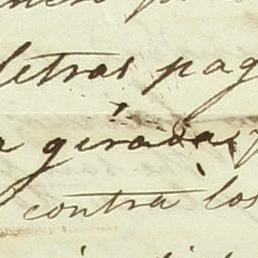 letras pag
a giradas
contra los